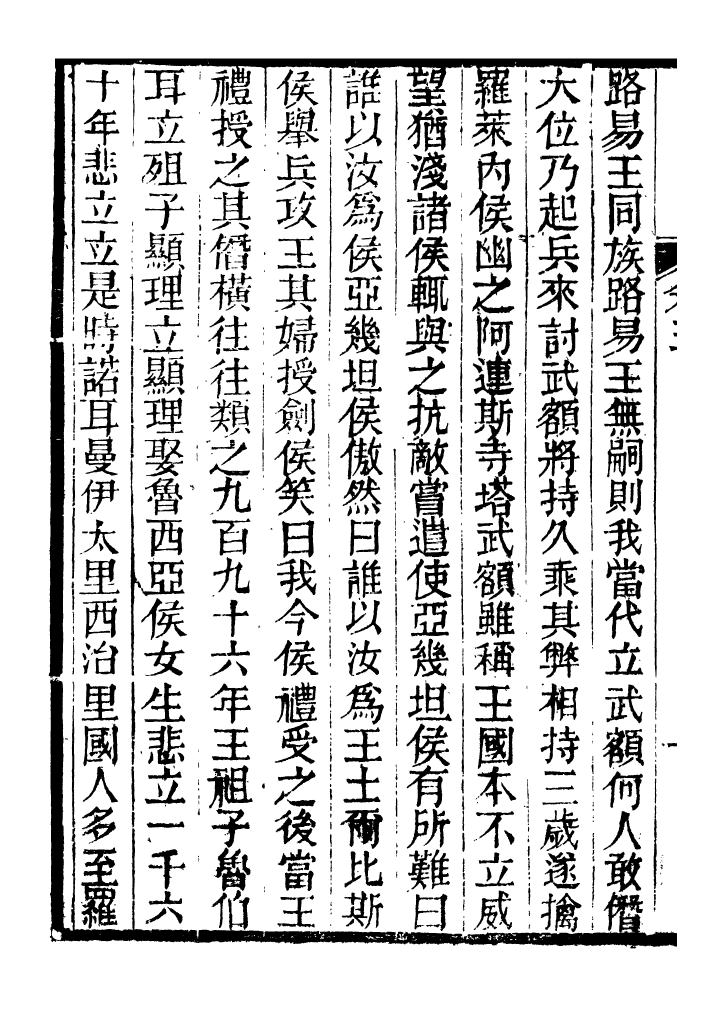 路易王同族路易王無嗣則我當代立武額何人敢僭
大位乃起兵來討武額將持久乘其弊相持三歲遂擒
羅萊內侯幽之阿連斯寺塔武額雖稱王國本不立威
望猶淺諸侯輒與之抗敵嘗遣使亞幾坦侯有所難曰
誰以汝為侯亞幾坦侯傲然曰誰以汝為王土爾比斯
侯舉兵攻王其婦授劍侯笑曰我今侯禮受之後當王
禮授之其僭橫往往類之九百九十六年王殂子魯伯
耳立殂子顯理立顯理娶魯西亞侯女生悲立一千六
十年悲立立是時諾耳曼伊太里西治里國人多至羅